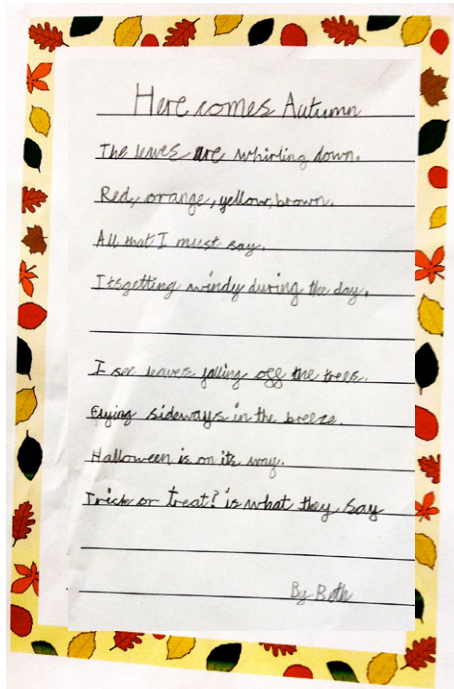 Here comes Autumn
The leaves are whirling down.
Red, orange, yellow, brown.
All that I must say.
Itsgetting windy during the day.
I see leaves falling off the trees.
Flying sideways in the breeze.
Halloween is on its way.
Trick or treat? is what they say
By Beth